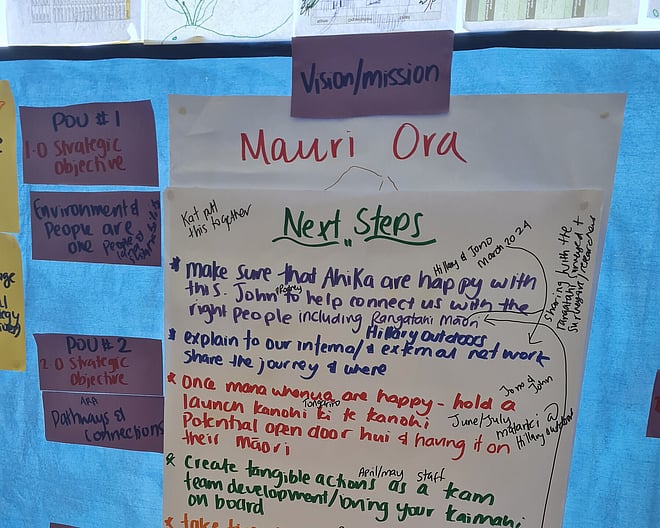 Vision/mission
Mauri Ora
POU #1
1.0 Strategic
Objective
Environment &
People are
one
POU #2
2.0 Strategic
Objective
AKA
Pathways &
Connections
Kat put
this together
Next Steps
Hillary & Jono
March 2024
* make sure that Ahika are happy with
this. John to help connect us with the
right people including Rangatahi Māori
sharing with the
Rangatahi
Hillary Outdoors
* explain to our internal & external network
share the journey & where
* Once mana whenua are happy - hold a
launch kanohi ki te kanohi
Tongariro
Potential open door hui & having it on
their māori
Jono &
John
June/July
matariki @
Hillary outdoors
* Create tangible actions as a team
April/may staff
team development/bring your kaimahi
on board